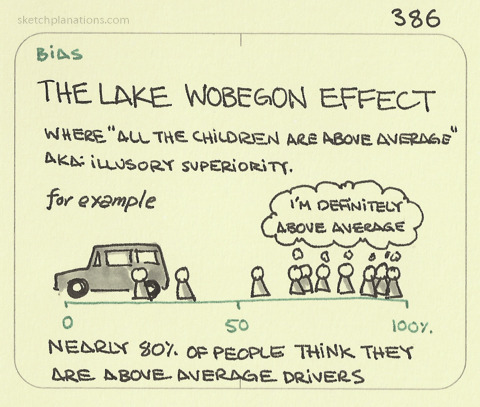 sketchplanations.com
386
BiAS
THE LAKE WOBEGON EFFECT
WHERE "ALL THE CHILDREN ARE ABOVE AVERAGE"
AKA: iLLUSORY SUPERiORiTY.
for example
I'M DEFiNiTELY
ABOVE AVERAGE
0 50 100%
NEARLY 80% OF PEOPLE THiNK THEY
ARE ABOVE AVERAGE DRiVERS